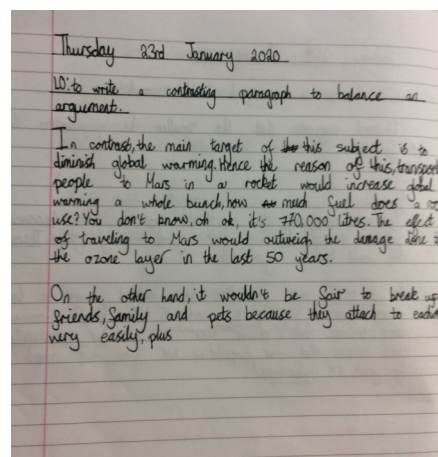 Thursday 23rd January 2020
LO: to write a contrasting paragraph to balance an
argument.
In contrast, the main target of the this subject is to
diminish global warming. Hence the reason of this, transport
people to Mars in a rocket would increase global
warming a whole bunch, how much fuel does a
use? You don't know, oh ok, it's 770,000 litres. The efect
of traveling to Mars would outweigh the damage done t
the ozone layer in the last 50 years.
On the other hand, it wouldn't be fair to break up
friends, family and pets because they attach to each
very easily, plus